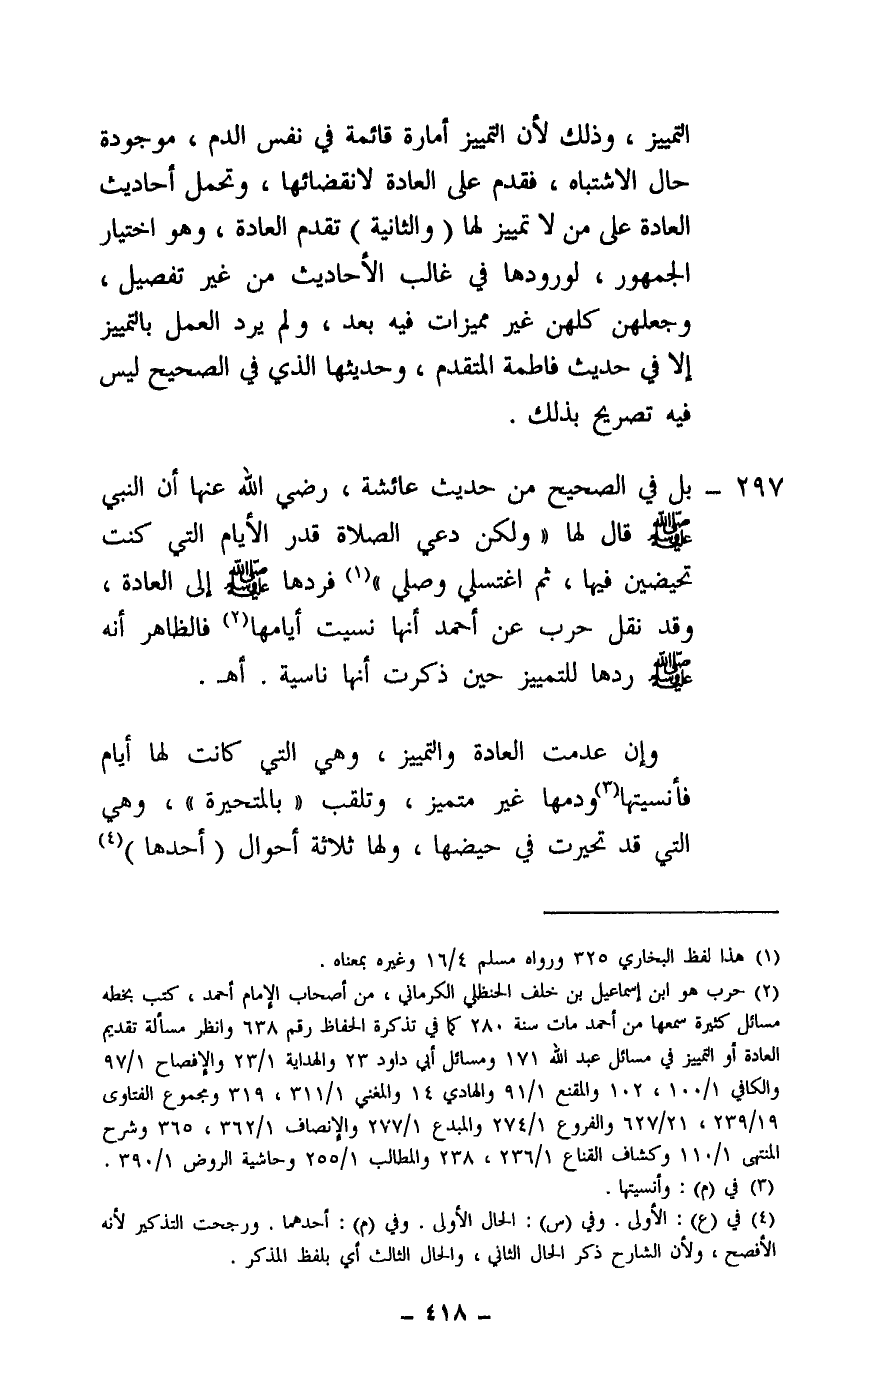 التمييز ، وذلك لأن التمييز أمارة قائمة في نفس الدم ، موجودة
حال الاشتباه ، فقدم على العادة لانقضائها ، وتحمل أحاديث
العادة على من لا تمييز لها ( والثانية ) تقدم العادة ، وهو اختيار
الجمهور ، لورودها في غالب الأحاديث من غير تفصيل ،
وجعلهن كلهن غير مميزات فيه بعد ، ولم يرد العمل بالتمييز
إلا في حديث فاطمة المتقدم ، وحديثها الذي في الصحيح ليس
فيه تصريح بذلك .
٢٩٧ – بل في الصحيح من حديث عائشة ، رضي الله عنها أن النبي
ﷺ قال لها « ولكن دعي الصلاة قدر الأيام التي كنت
تحيضين فيها ، ثم اغتسلي وصلي »(١) فردها ﷺ إلى العادة ،
وقد نقل حرب عن أحمد أنها نسيت أيامها(٢) فالظاهر أنه
ﷺ ردها للتمييز حين ذكرت أنها ناسية . أهـ .
وإن عدمت العادة والتمييز ، وهي التي كانت لها أيام
فأنسيتها(٣)ودمها غير متميز ، وتلقب « بالمتحيرة » ، وهي
التي قد تحيرت في حيضها ، ولها ثلاثة أحوال ( أحدها )(٤)
(١) هذا لفظ البخاري ٣٢٥ ورواه مسلم ١٦/٤ وغيره بمعناه .
(٢) حرب هو ابن إسماعيل بن خلف الحنظلي الكرماني ، من أصحاب الإمام أحمد ، كتب بخطه
مسائل كثيرة سمعها من أحمد مات سنة ٢٨٠ كما في تذكرة الحفاظ رقم ٦٣٨ وانظر مسألة تقديم
العادة أو التمييز في مسائل عبد الله ١٧١ ومسائل أبي داود ٢٣ والهداية ٢٣/١ والإفصاح ٩٧/١
والكافي ١٠٠/١ ، ١٠٢ والمقنع ٩١/١ والهادي ١٤ والمغني ٣١١/١ ، ٣١٩ ومجموع الفتاوى
٢٣٩/١٩ ، ٦٢٧/٢١ والفروع ٢٧٤/١ والمبدع ٢٧٧/١ والإنصاف ٣٦٢/١ ، ٣٦٥ وشرح
المنتهى ١١٠/١ وكشاف القناع ٢٣٦/١ ، ٢٣٨ والمطالب ٢٥٥/١ وحاشية الروض ٣٩٠/١ .
(٣) في (م) : وأنسيتها .
(٤) في (ع) : الأولى . وفي (س) : الحال الأولى . وفي (م) : أحدهما . ورجحت التذكير لأنه
الأفصح ، ولأن الشارح ذكر الحال الثاني ، والحال الثالث أي بلفظ المذكر .
– ٤١٨ –